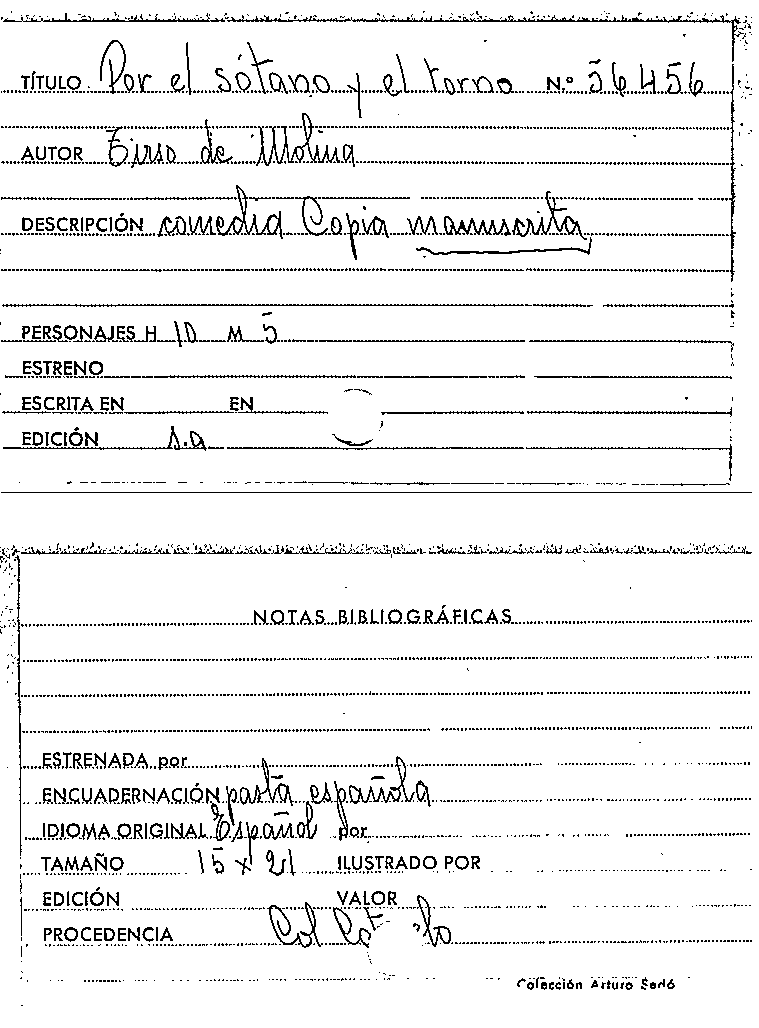 TÍTULO Por el sótano y el torno N.º 56456
AUTOR Tirso de Molina
DESCRIPCIÓN comedia Copia manuscrita
PERSONAJES H 10 M 5
ESTRENO
ESCRITA EN EN
EDICIÓN s.a
NOTAS BIBLIOGRÁFICAS
ESTRENADA por
ENCUADERNACIÓN pasta española
IDIOMA ORIGINAL Español por
TAMAÑO 15 x 21 ILUSTRADO POR
EDICIÓN VALOR
PROCEDENCIA Col
Colección Arturo Sedó